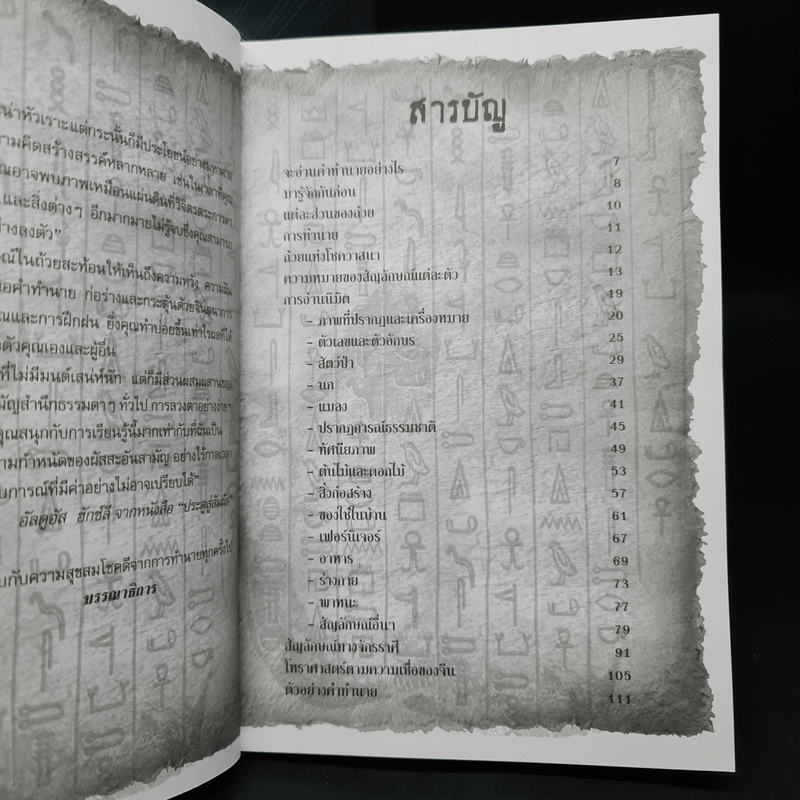 น่าหัวเราะแต่กระนั้นก็มีประโยชน์อย่างมหาศาล
ามคิดสร้างสรรค์หลากหลาย เช่นในเวลาที่คุณ
ณอาจพบภาพเหมือนแผ่นดินที่วิจิตรตระการตา
และสิ่งต่างๆ อีกมากมายไม่รู้จบซึ่งคุณสามารถ
างลงตัว"
ณ์ในถ้วยสะท้อนให้เห็นถึงความหวัง ความฝัน
อคำทำนาย ก่อร่างและกระตุ้นด้วยจินตนาการ
ณและการฝึกฝน ยิ่งคุณทำบ่อยขึ้นเท่าไรผลที่ได้
ตัวคุณเองและผู้อื่น
ที่ไม่มีมนต์เสน่ห์นัก แต่ก็มีส่วนผสมผสานของ
มัญสำนึกธรรมดาๆ ทั่วไป การลวงตาอย่างง่ายๆ
คุณสนุกกับการเรียนรู้นี้มากเท่ากับที่ฉันเป็น
ามกำหนัดของผัสสะอันสามัญ อย่างไร้กาลเวลา
บการณ์ที่มีค่าอย่างไม่อาจเปรียบได้"
อัลดูอัส ฮักซ์ลี จากหนังสือ "ประตูสู่สัมผัส"
บกับความสุขสมโชคดีจากการทำนายทุกครั้งไป
บรรณาธิการ
สารบัญ
จะอ่านคำทำนายอย่างไร 7
มารู้จักกันก่อน 8
แต่ละส่วนของถ้วย 10
การทำนาย 11
ถ้วยแห่งโชควาสนา 12
ความหมายของสัญลักษณ์แต่ละตัว 13
การอ่านนิมิต 19
- ภาพที่ปรากฏและเครื่องหมาย 20
- ตัวเลขและตัวอักษร 25
- สัตว์ป่า 29
- นก 37
- แมลง 41
- ปรากฏการณ์ธรรมชาติ 45
- ทัศนียภาพ 49
- ต้นไม้และดอกไม้ 53
- สิ่งก่อสร้าง 57
- ของใช้ในบ้าน 61
- เฟอร์นิเจอร์ 67
- อาหาร 69
- ร่างกาย 73
- พาหนะ 77
- สัญลักษณ์อื่นๆ 79
สัญลักษณ์ทางจักรราศี 91
โหราศาสตร์ตามความเชื่อของจีน 105
ตัวอย่างคำทำนาย 111